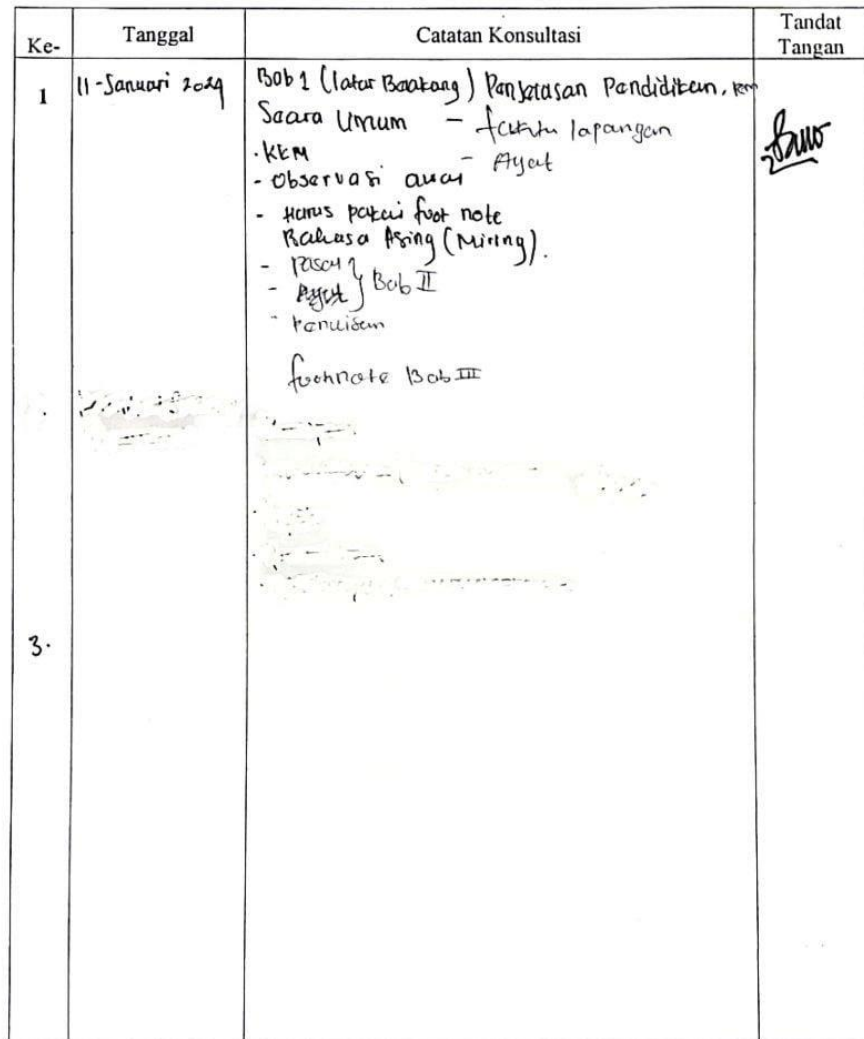 Ke- Tanggal Catatan Konsultasi Tandat Tangan
1 11-Januari 2024 Bab 1 (latar Belakang) Penjelasan Pendidikan,
Secara Umum - faktu lapangan
. KKM - Ayat
- Observasi awal
- Harus pakai foot note
Bahasa Asing (Miring).
- Pasal
- Ayat } Bab II
- Penulisan
footnote Bab III
3.